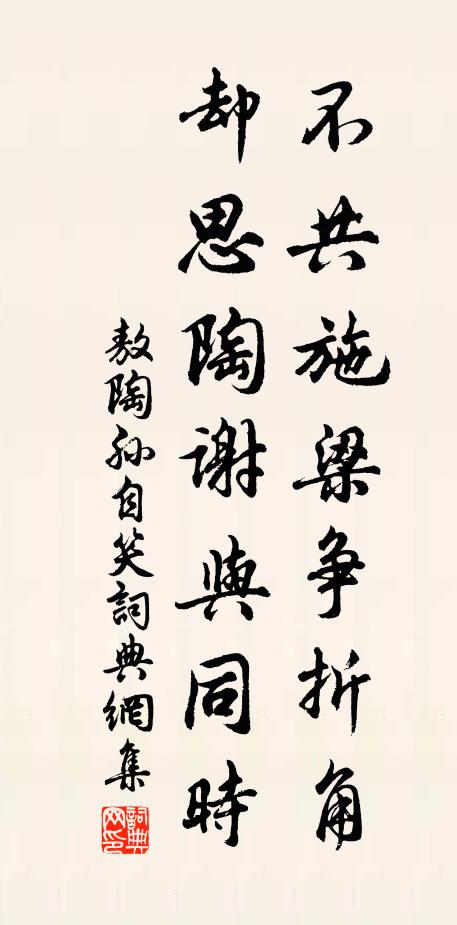 不共施梁争折角
却思陶謝與同時
敖陶孫自笑詞典網集
詞典网印